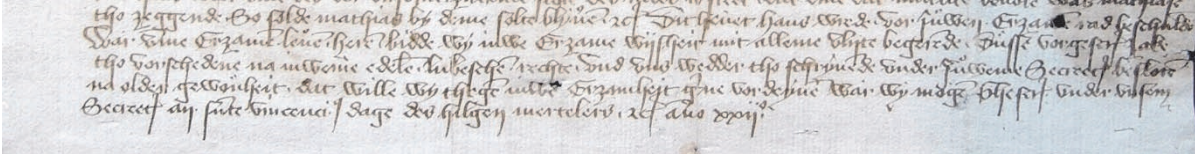 tho zeggende So solde mathias by deme solte blyuen etc Du heuet hans wrede vor juwer Erzamen rad beschuldet
War vme Erzamen leuen heren bidde wy juwe Erzame wijsheit mit alleme vlyte begerende Dusse vorgescr sake
tho vorschedene na juweme edelen lubeschen rechte vnd vns wedder tho schryuende vnder juweme Secrete besloten
na older gewonheit dat wille wy theghen juwe Erzamheit gerne vordenen war wy mogen Screuen vnder vnsem
Secrete an sunte vincencij dage des hilgen mertelers etc anno xxij